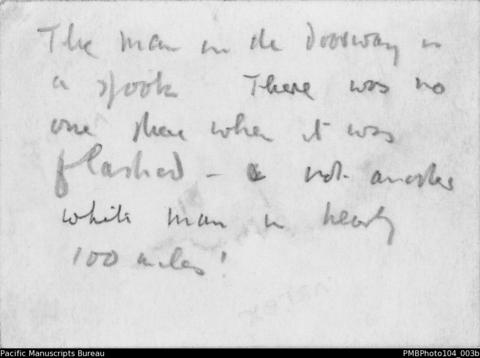 The man in the doorway is
a spook There was no
one there when it was
flashed - & not another
white man in nearly
100 miles!
Pacific Manuscripts Bureau
PMBPhoto104_003b